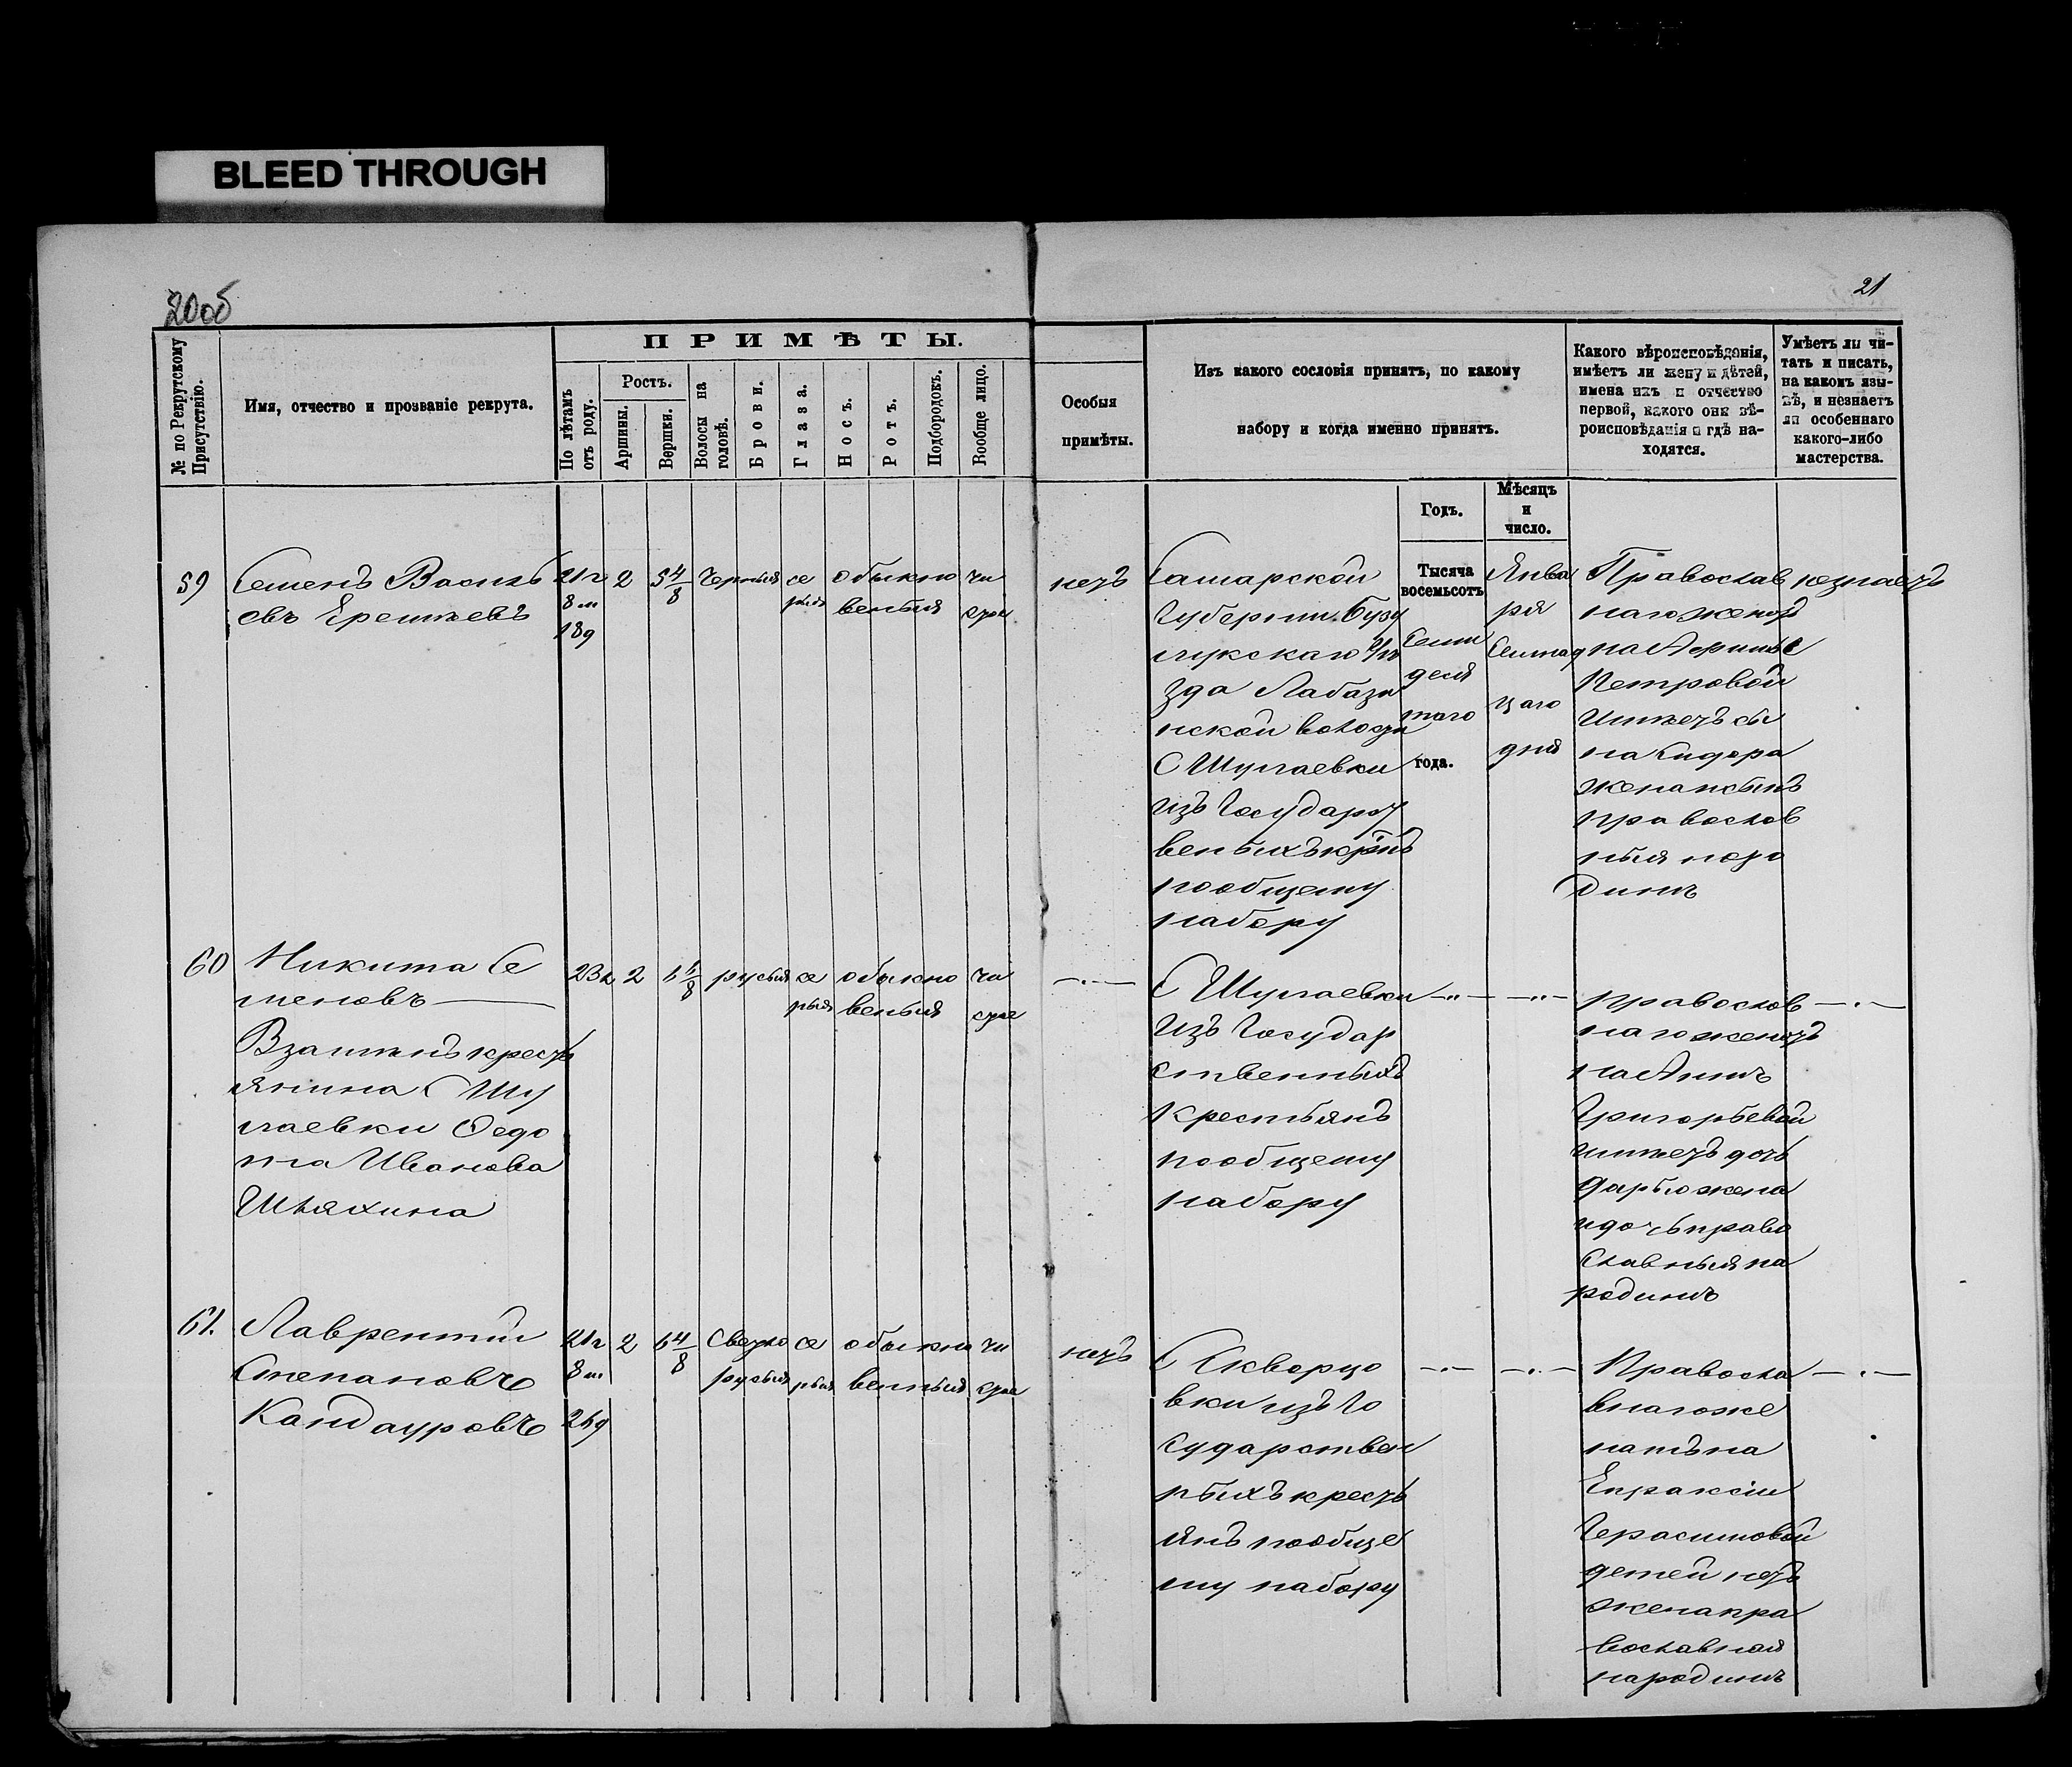 BLEED THROUGH
20об
21
№ по Рекрутскому Присутствію.
Имя, отчество и прозваніе рекрута.
ПРИМѢТЫ.
По лѣтамъ отъ роду.
Ростъ.
Аршины.
Вершки.
Волосы на головѣ.
Брови.
Глаза.
Носъ.
Ротъ.
Подбородокъ.
Вообще лицо.
Особыя
примѣты.
Изъ какого сословія принятъ, по какому
набору и когда именно принятъ.
Какого вѣроисповѣданія,
имѣетъ ли жену и дѣтей,
имена ихъ и отчество
первой, какого онѣ вѣ-
роисповѣданія и гдѣ на-
ходятся.
Умѣетъ ли чи-
тать и писать,
на какомъ язы-
кѣ, и незнаетъ
ли особеннаго
какого-либо
мастерства.
Годъ.
Мѣсяцъ
и
число.
59
Семенъ Василь
евъ
21 г
8 м
18 д
2
5 4/8
Черныя
се
рыя
обыкно
веныя
чи
стое
нетъ
Самарской
Губерніи Бузу
лукскаго Уѣ
зда Лабази
нской волости
С Шулаевки
изъ Государст
веныхъ кр-нъ
пообщему
набору
Тысяча
восемьсотъ
Семи
деся
таго
года.
Янва
ря
Семнад
цаго
дня
Православ
наго женат
на
Петровой
имѣетъ сы
на Сидора
жена исынъ
православ
ныя наро
динѣ
незнаетъ
60
Никита Се
меновъ
Взамѣнъ кресть
янина С Шу
лаевки Ѳедо
та Иванова
Шляхина
23 г
2
6/8
русыя
се
рыя
обыкно
веныя
чи
стое
С Шулаевки
изъ Государ
ственныхъ
Крестьянъ
пообщему
набору
православ
наго женатъ
на Аннѣ
Григорьевой
имѣетъ дочь
Дарью жена
идочь право
славныя на
родинѣ
61.
Лаврентій
Степановъ
Кандауровъ
21 г
8 м
26 д
2
6 4/8
Светло
русыя
се
рыя
обыкно
венныя
чи
стое
нетъ
С Скворцо
вки изъ Го
сударствен
ныхъ кресть
янъ пообще
му набору
Правосла
внаго же
натъ на
Епраксіи
Герасимовой
детей нетъ
жена пра
вославная
народинѣ